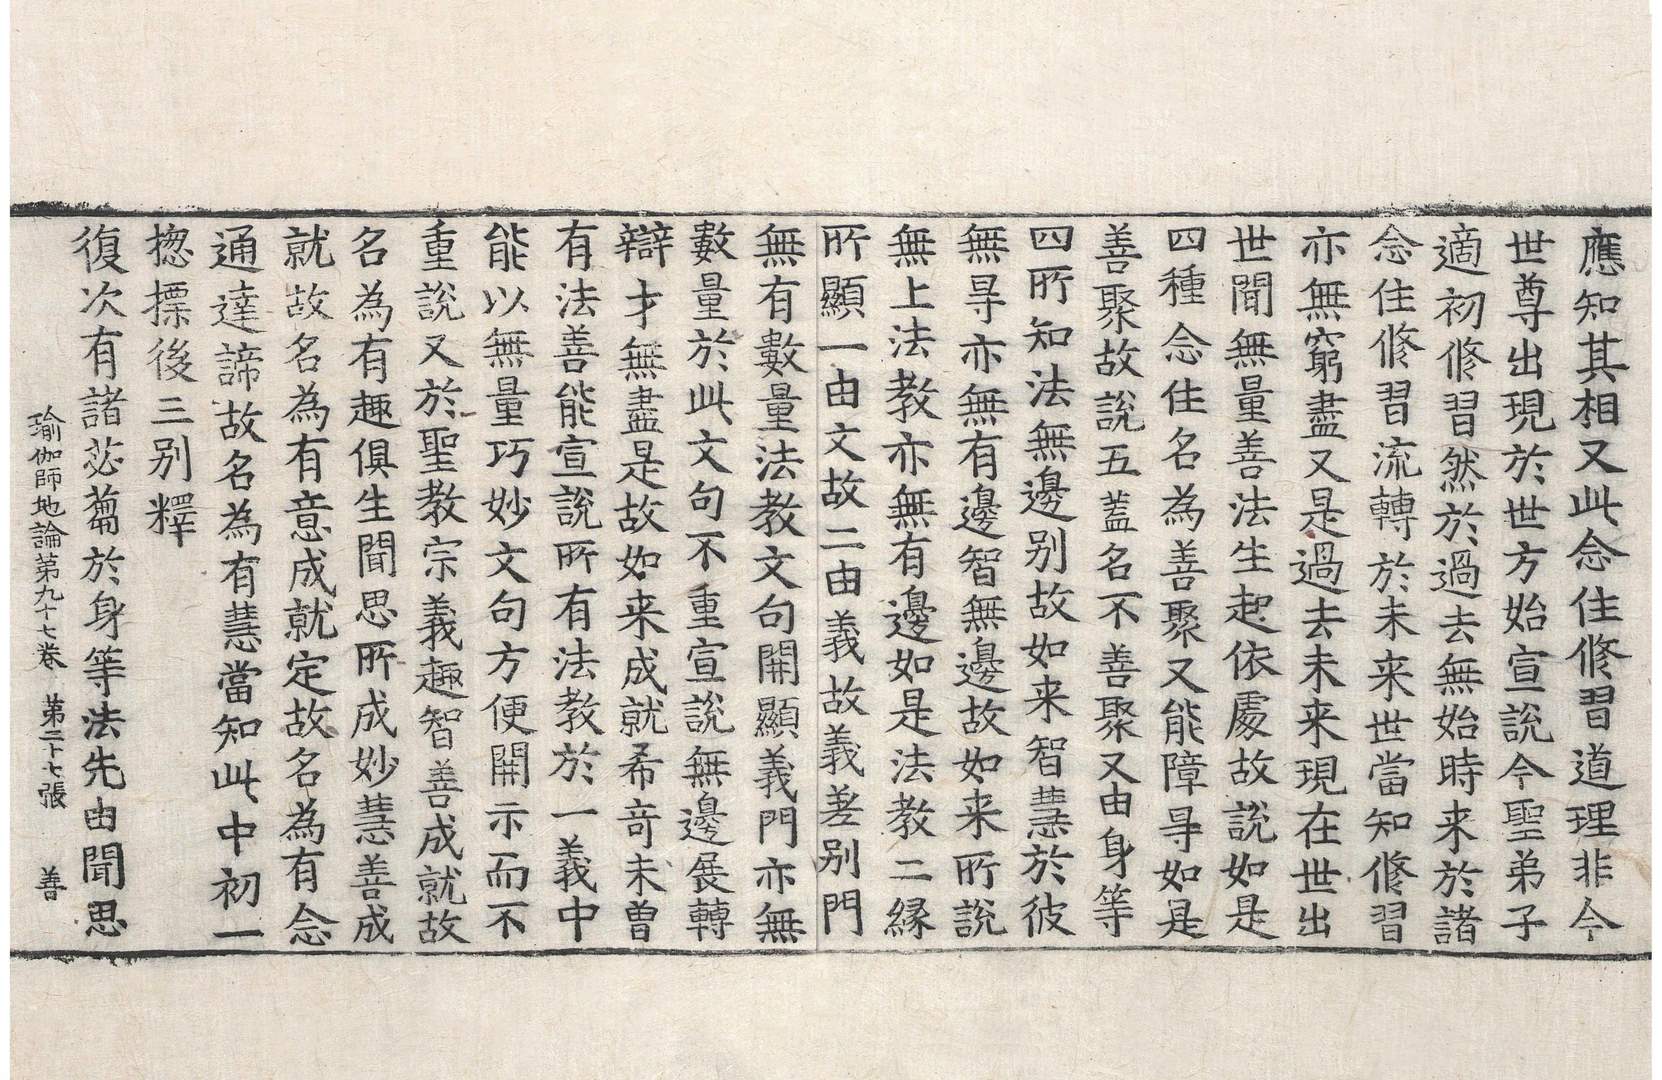 應知其相又此念住修習道理非今
世尊出現於世方始宣說今聖弟子
適初修習然於過去無始時来於諸
念住修習流轉於未来世當知修習
亦無窮盡又是過去未来現在世出
世間無量善法生起依處故說如是
四種念住名為善聚又能障㝵如是
善聚故說五蓋名不善聚又由身等
四所知法無邊別故如来智慧於彼
無㝵亦無有邊智無邊故如来所說
無上法教亦無有邊如是法教二緣
所顯一由文故二由義故義差別門
無有數量法教文句開顯義門亦無
數量於此文句不重宣說無邊展轉
辯才無盡是故如来成就希奇未曽
有法善能宣說所有法教於一義中
能以無量巧妙文句方便開示而不
重說又於聖教宗義趣智善成就故
名為有趣俱生聞思所成妙慧善成
就故名為有意成就定故名為有念
通達諦故名為有慧當知此中初一
揔摽後三別釋
復次有諸苾蒭於身等法先由聞思
瑜伽師地論第九十七卷　第二十七張　善